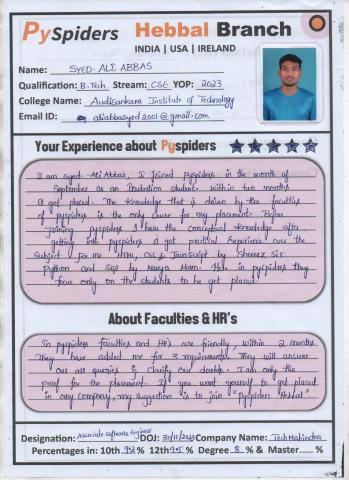 PySpiders Hebbal Branch
INDIA | USA | IRELAND
Name: SYED-ALI ABBAS
Qualification: B.Tech Stream: CSE YOP: 2023
College Name: Audisankara Institute of Technology
Email ID: aliabbasyed2001@gmail.com
Your Experience about Pyspiders
I am syed-Ali Abbas, I joined pyspiders in the month of
September as an Probation student. Within two months
I got placed. The knowledge that is driven by the faculties
of pyspiders is the only cause for my placement. Before
Joining pyspiders I have the conceptual knowledge after
getting into pyspiders I got practical experience over the
subject for me HTML, CSS & JavaScript by Sheeraz Sir
Python and Sql by Navya Mam. Here in pyspiders they
focus only on the students to be get placed.
About Faculties & HR's
In pyspiders faculties and HR's are friendly, within 2 months
They have added me for 3 requirements. They will answer
our all queries & clarify our doubts. I am only the
proof for the placement. If you want yourself to get placed
in any company, my suggestion is to join "pyspiders Hebbal"
Designation: Associate Software Engineer DOJ: 30/11/2023 Company Name: Tech Mahindra
Percentages in: 10th % 12th % Degree 8 % & Master %